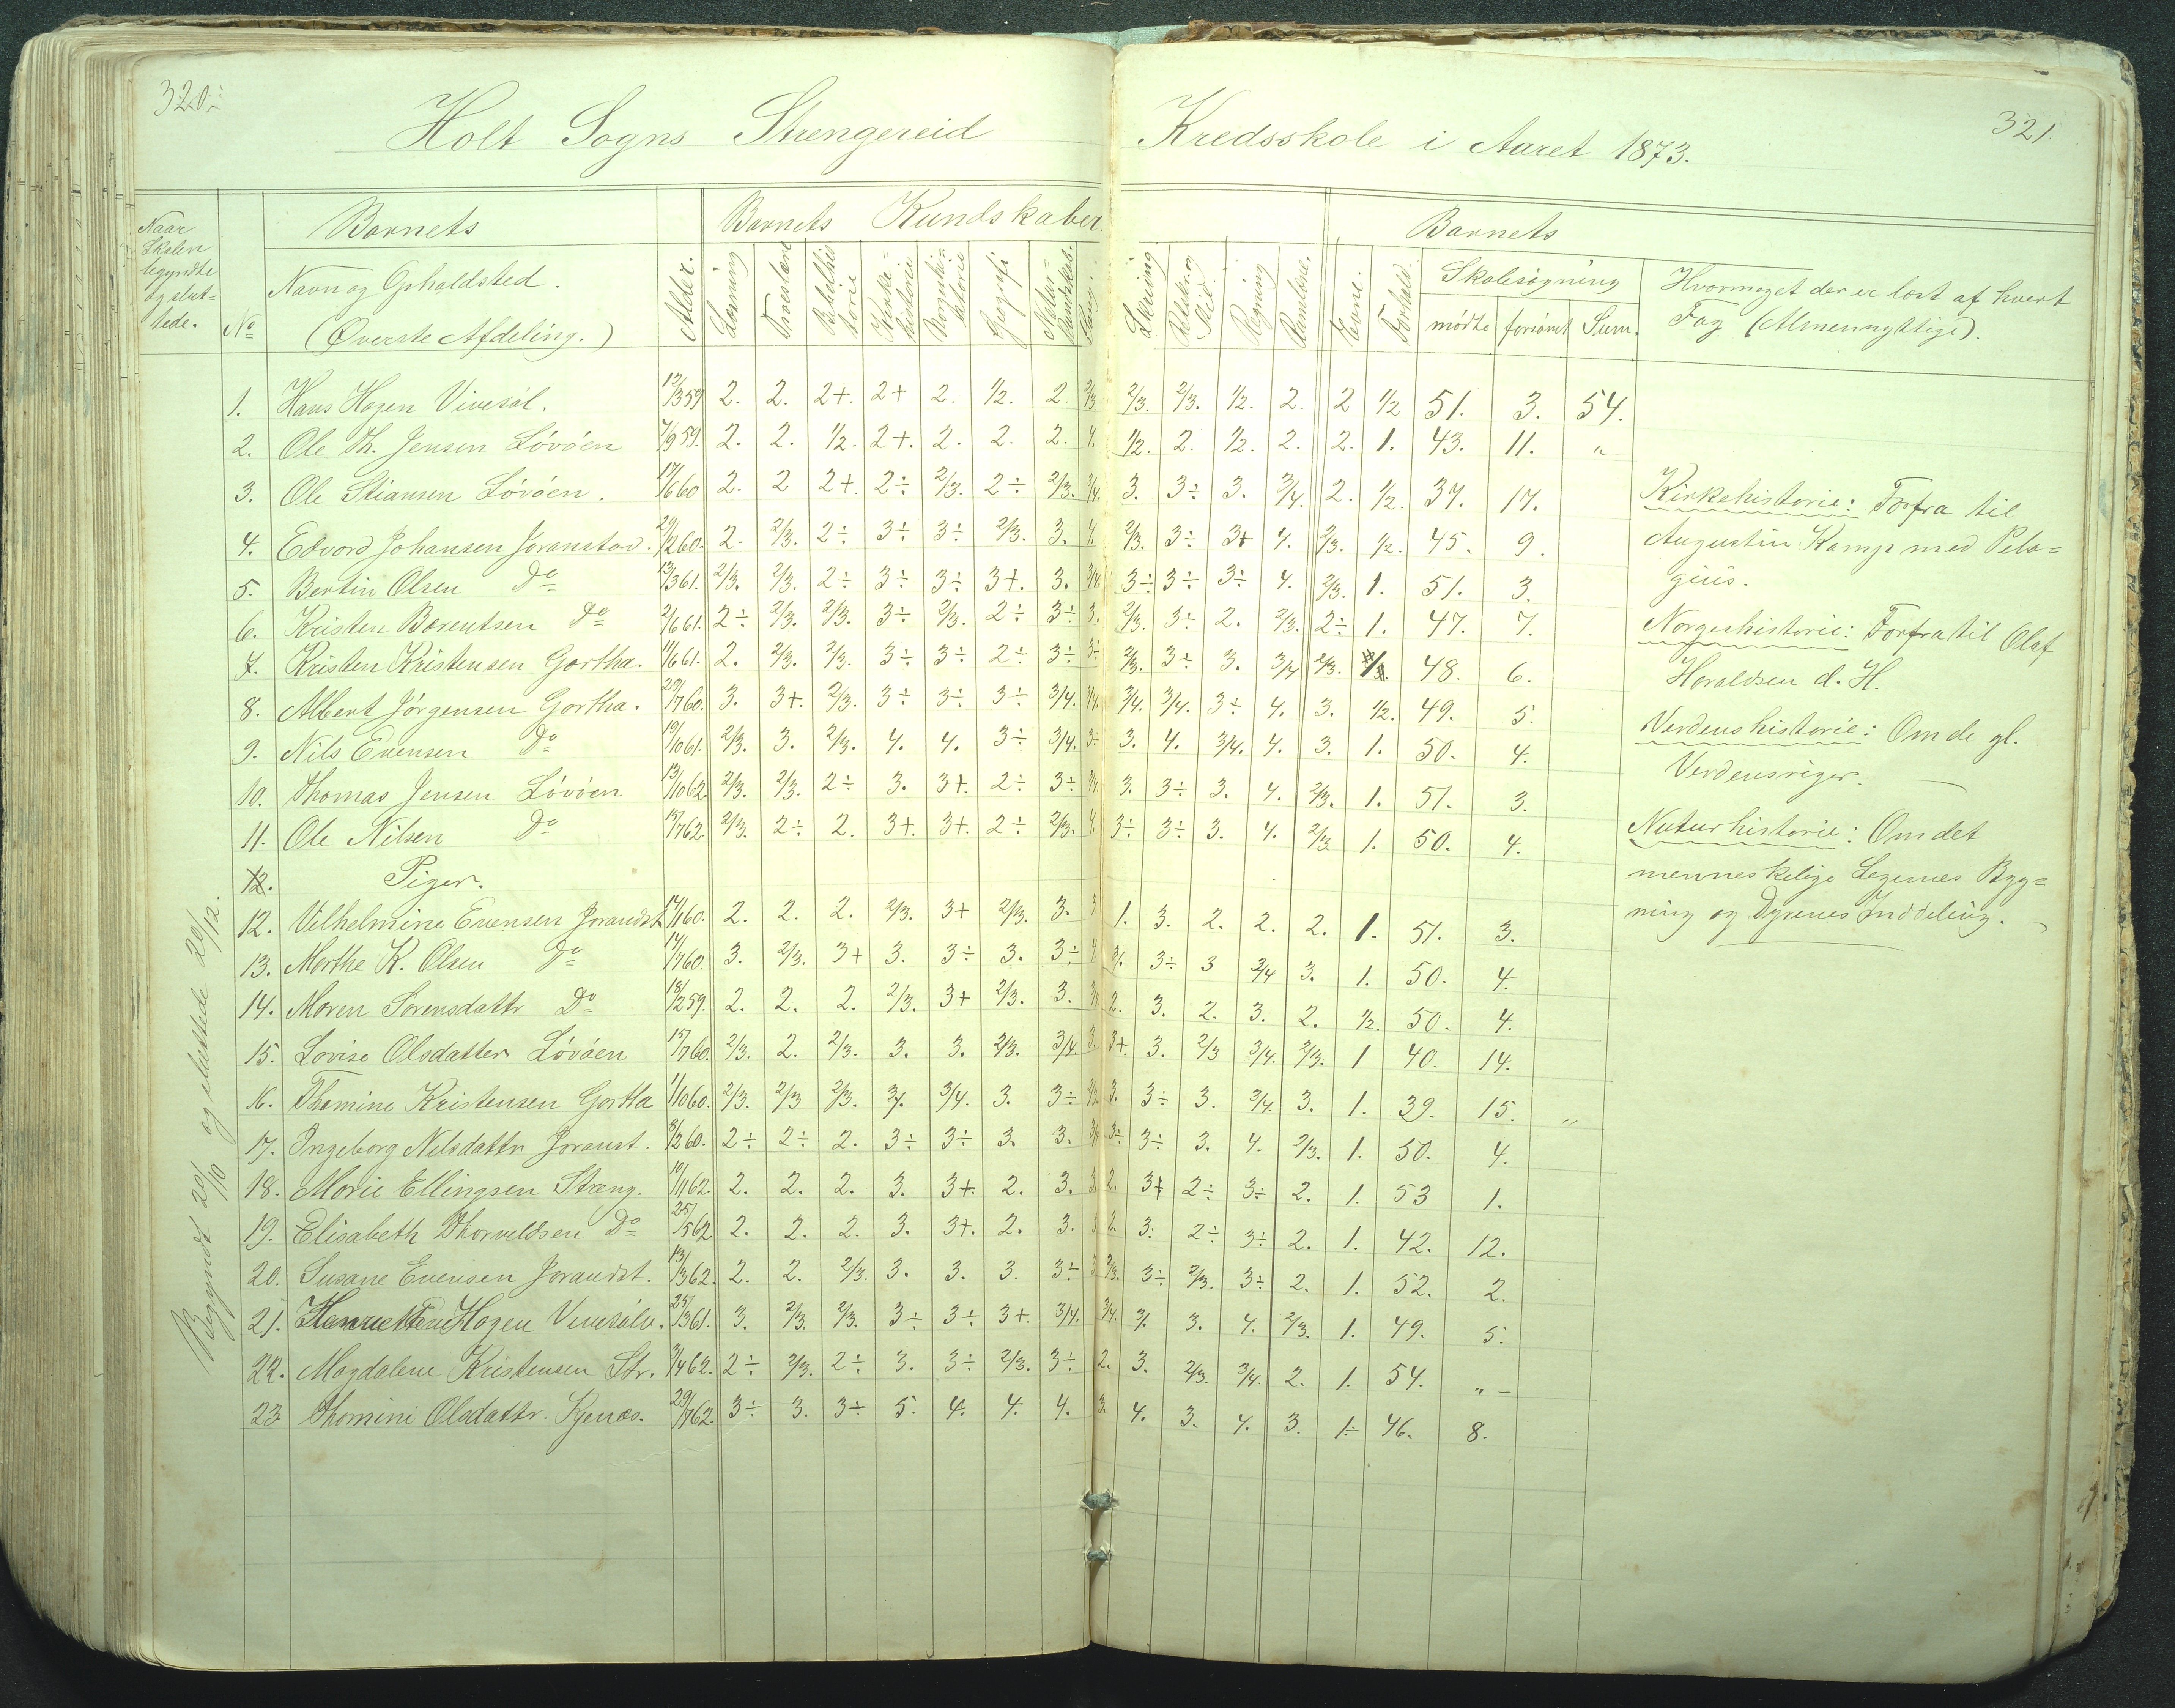 320.
Holt Sogns Strengereid
Kredsskole i Aaret 1873.
321.
Naar Skolen begyndte og slut= tede.
No
Barnets
Navn og Opholdsted.
(Øverste Afdeling.)
Alder.
Barnets Kundskaber
Læsning
Troeslære
Bibelhis torie
Kirke= historie
Norgeshi= storie
Geografi
Natur= kundskab.
Sang.
Skrivning
Retskr. og Stil
Regning
Barnets
Evne.
Forhold.
Skolesøgning
mødte forsømt Sum.
Hvormeget der er læst af hvert
Fag (Almennyttige).
Begyndt 20/10 og sluttede 20/12.
1. Hans Hagen Vivesøl. 12/3 59 2. 2. 2+. 2+ 2. 1/2. 2. 2/3 2/3. 2/3. 1/2. 2. 2 1/2 51. 3. 54.
2. Ole Th. Jensen Løvøen 7/9 59. 2. 2. 1/2. 2+. 2. 2. 2. 4. 1/2. 2. 1/2. 2. 2. 1. 43. 11. "
3. Ole Stiansen Løvøen. 17/6 60 2. 2 2+. 2÷ 2/3. 2÷ 2/3. 3/4. 3. 3÷ 3. 3/4. 2. 1/2. 37. 17.
4. Edvard Johansen Joranstad. 29/12 60. 2. 2/3. 2÷ 3÷ 3÷ 2/3. 3. 4. 2/3. 3÷ 3+ 4. 2/3. 1/2. 45. 9.
5. Bertin Olsen Do 13/3 61. 2/3. 2/3. 2÷ 3÷ 3÷ 3+. 3. 3/4. 3÷ 3÷ 3÷ 4. 2/3. 1. 51. 3.
6. Kristen Barentsen Do 2/6 61. 2÷ 2/3. 2/3. 3÷ 2/3. 2÷ 3÷ 3. 2/3. 3÷ 2. 2/3. 2÷ 1. 47. 7.
7. Kristen Kristensen Gortha. 11/6 61. 2. 2/3. 2/3. 3÷ 3÷ 2÷ 3÷ 3÷ 2/3. 3÷ 3. 3/4 2/3. 48. 6.
8. Albert Jørgensen Gortha. 29/7 60. 3. 3+. 2/3. 3÷ 3÷ 3÷ 3/4. 3/4. 3/4. 3/4. 3÷ 4. 3. 1/2. 49. 5.
9. Nils Evensen Do 19/10 61. 2/3. 3. 2/3. 4. 4. 3÷ 3/4. 3÷ 3. 4. 3/4. 4. 3. 1. 50. 4.
10. Thomas Jensen Løvøen 13/10 62. 2/3. 2/3. 2÷ 3. 3+. 2÷ 3÷ 3/4. 3. 3÷ 3. 4. 2/3. 1. 51. 3.
11. Ole Nilsen Do 15/7 62. 2/3. 2÷ 2. 3+. 3+. 2÷ 2/3. 4. 3÷ 3÷ 3. 4. 2/3 1. 50. 4.
12. Piger.
12. Vilhelmine Evensen Jorandst. 17/1 60. 2. 2. 2. 2/3. 3+ 2/3. 3. 3. 1. 3. 2. 2. 2. 1. 51. 3.
13. Marthe K. Olsen Do 17/7 60. 3. 2/3. 3+ 3. 3÷ 3. 3÷ 4. 3/. 3÷ 3 3/4 3. 1. 50. 4.
14. Maren Sørensdattr Do 18/2 59. 2. 2. 2. 2/3. 3+ 2/3. 3. 3/4 2. 3. 2. 3. 2. 1/2. 50. 4.
15. Lovise Olsdatter Løvøen 15/7 60. 2/3. 2. 2/3. 3. 3. 2/3. 3/4. 3. 3+. 3. 2/3 3/4. 2/3. 1 40. 14.
16. Thomine Kristensen Gortha 1/10 60. 2/3. 2/3 2/3. 3/. 3/4. 3. 3÷ 2/3. 3. 3÷ 3. 3/4. 3. 1. 39. 15. "
17. Ingeborg Nilsdattr Joranst. 8/2 60. 2÷ 2÷ 2. 3÷ 3÷ 3. 3. 3/4 3÷ 3÷ 3. 4. 2/3. 1. 50. 4.
18. Marie Ellingsen Stræng. 10/11 62. 2. 2. 2. 3. 3+. 2. 3. 3. 2. 3+ 2÷ 3÷ 2. 1. 53 1.
19. Elisabeth Thorvaldsen Do 25/5 62. 2. 2. 2. 3. 3+. 2. 3. 3 2. 3. 2÷ 3÷ 2. 1. 42. 12.
20. Susane Evensen Jorandst. 13/3 62. 2. 2. 2/3. 3. 3. 3. 3÷ 3 2/3. 3÷ 2/3. 3÷ 2. 1. 52. 2.
21. Henriette Hagen Vivesølv. 25/3 61. 3. 2/3. 2/3. 3÷ 3÷ 3+. 3/4. 3/4. 3/. 3. 4. 2/3. 1. 49. 5.
22. Magdalene Kristensen Str. 3/4 62. 2÷ 2/3. 2÷ 3. 3÷ 2/3. 3÷ 2. 3. 2/3. 3/4. 2. 1. 54. "
23 Thomine Olsdattr. Kjenæs. 29/7 62. 3÷ 3. 3÷ 5. 4. 4. 4. 3. 4. 3. 4. 3. 1÷ 46. 8.
Kirkehistorie: Forfra til
Augustin Kamp med Pela=
giùs.
Norgeshistorie: Forfra til Olaf
Haraldsen d. H.
Verdenshistorie: Om de gl.
Verdensriger.
Naturhistorie: Om det
menneskelige Legemes Byg=
ning og Dyrenes Inddeling.